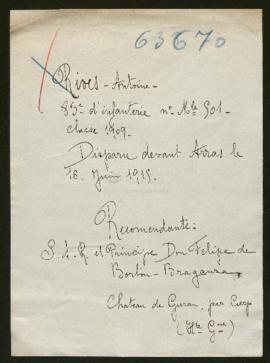 63670
Rives - Antoine -
83e d'infanterie nº Mle 501 -
classe 1909 -
Disparu devant Arras le
18 Juin 1915.
Recomendante:
S. A. R. el Principe Don Felipe de
Borbon - Braganza,
Chateau de Guran, par Cierp
(Hte Gne)